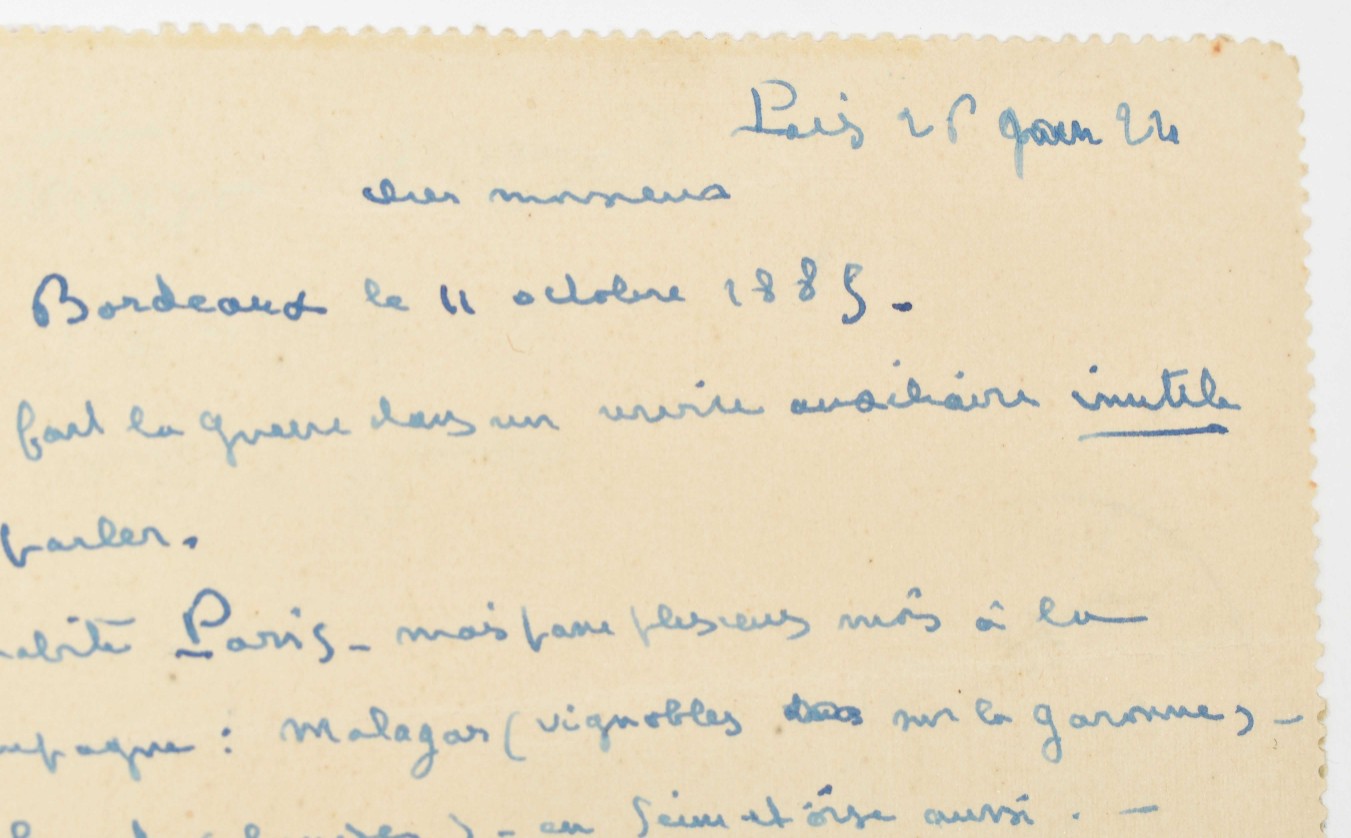 Paris 26 janv 24
cher monsieur
Bordeaux le 11 octobre 1885.
fait la guerre dans un service auxiliaire inutile
parler.
habite Paris - mais passe plusieurs mois à la
campagne : Malagar (vignobles sur la Garonne) -
- en Seine et Oise aussi . -